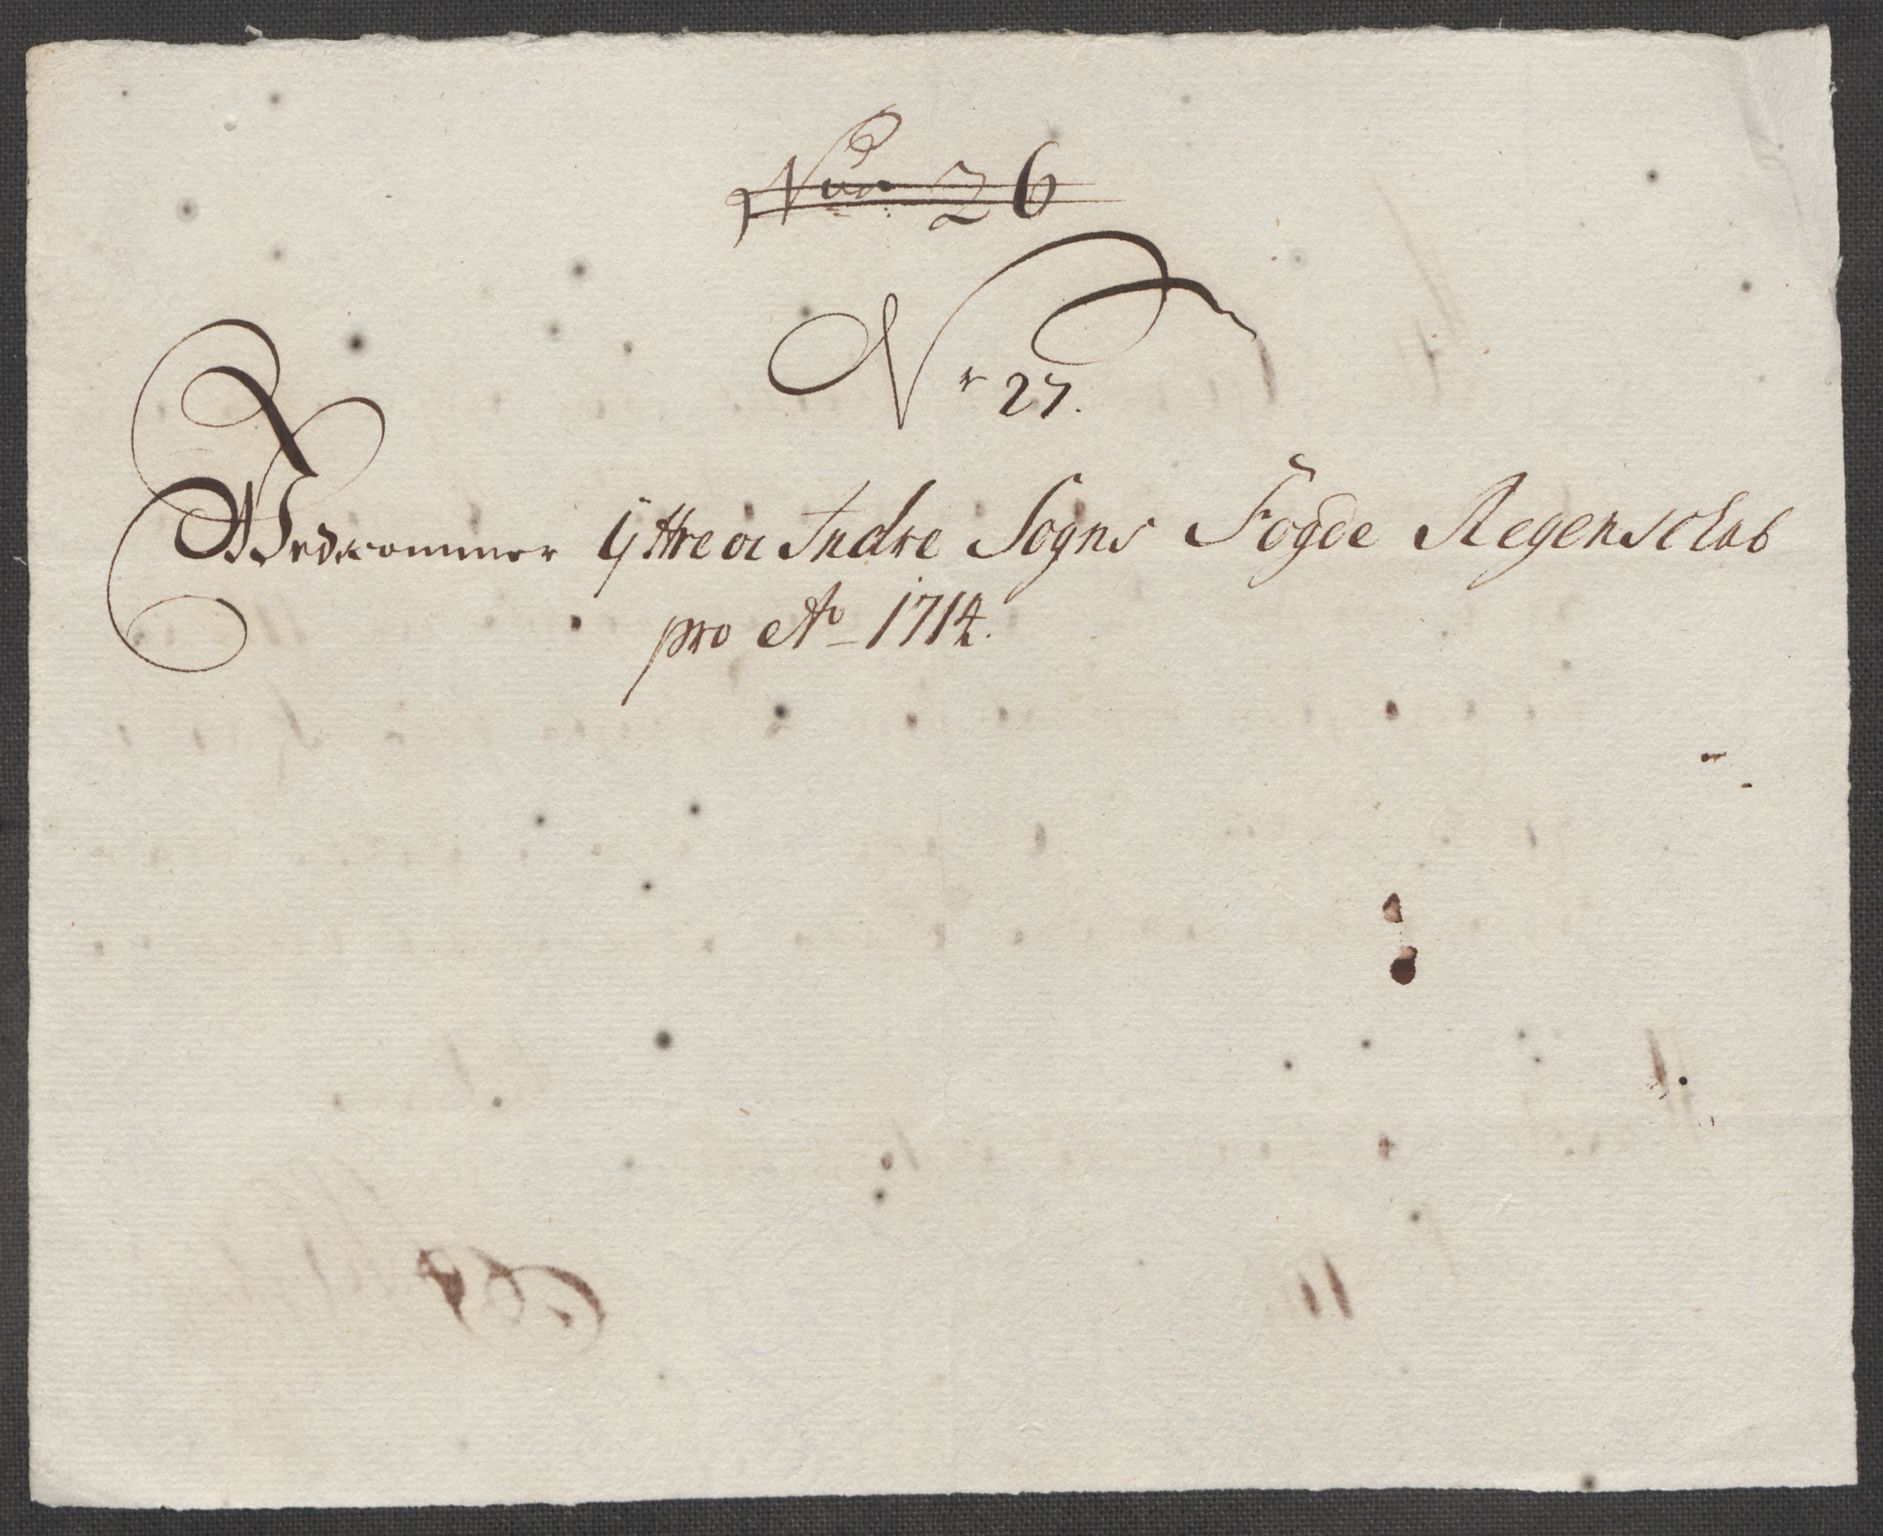 Num 26
Nr 27.
Vedkommer Ÿttre oc Indre Sogns Fogde Regenschab
pro Ao 1714.